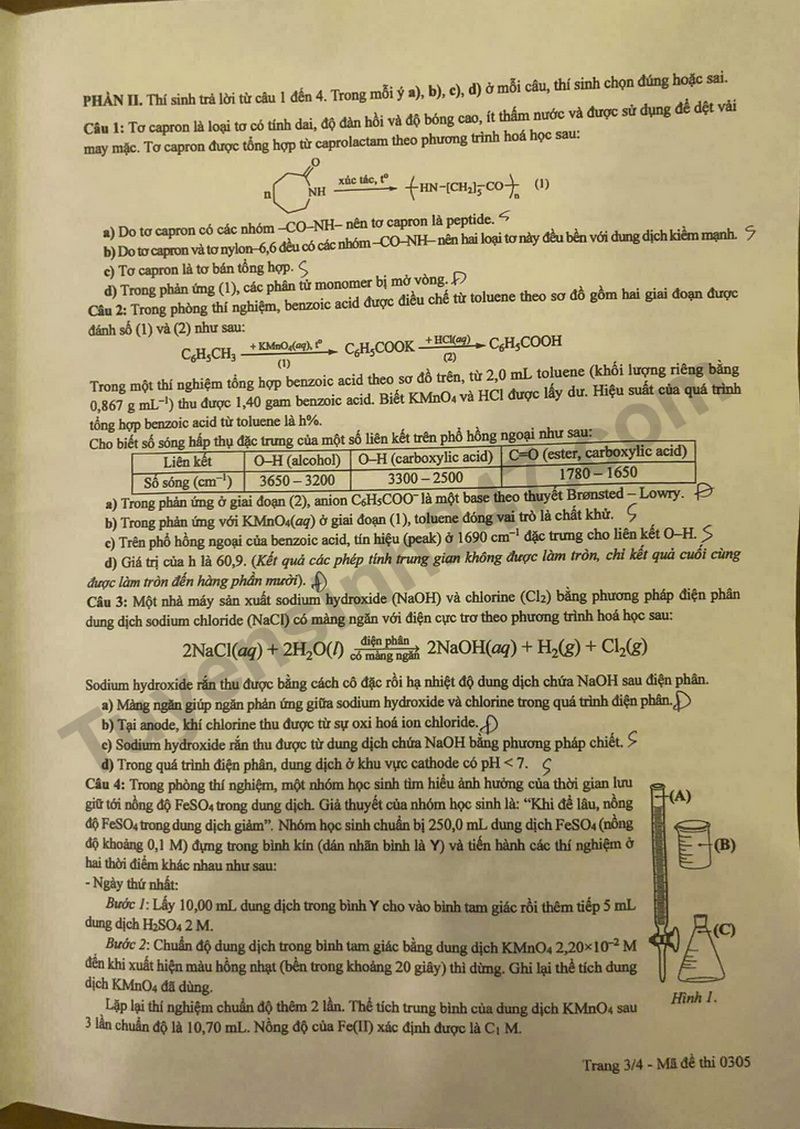 PHẦN II. Thí sinh trả lời từ câu 1 đến 4. Trong mỗi ý a), b), c), d) ở mỗi câu, thí sinh chọn đúng hoặc sai.
Câu 1: Tơ capron là loại tơ có tính dai, độ đàn hồi và độ bóng cao, ít thấm nước và được sử dụng để dệt vải
may mặc. Tơ capron được tổng hợp từ caprolactam theo phương trình hoá học sau:
n O NH xúc tác, tº HN–[CH2]5–CO n (1)
a) Do tơ capron có các nhóm –CO–NH– nên tơ capron là peptide. S
b) Do tơ capron và tơ nylon–6,6 đều có các nhóm –CO–NH– nên hai loại tơ này đều bền với dung dịch kiềm mạnh. S
c) Tơ capron là tơ bán tổng hợp. S
d) Trong phản ứng (1), các phân tử monomer bị mở vòng. Đ
Câu 2: Trong phòng thí nghiệm, benzoic acid được điều chế từ toluene theo sơ đồ gồm hai giai đoạn được
đánh số (1) và (2) như sau:
C6H5CH3 + KMnO4(aq), tº (1) C6H5COOK + HCl(aq) (2) C6H5COOH
Trong một thí nghiệm tổng hợp benzoic acid theo sơ đồ trên, từ 2,0 mL toluene (khối lượng riêng bằng
0,867 g mL⁻¹) thu được 1,40 gam benzoic acid. Biết KMnO4 và HCl được lấy dư. Hiệu suất của quá trình
tổng hợp benzoic acid từ toluene là h%.
Cho biết số sóng hấp thụ đặc trưng của một số liên kết trên phổ hồng ngoại như sau:
Liên kết O–H (alcohol) O–H (carboxylic acid) C=O (ester, carboxylic acid)
Số sóng (cm⁻¹) 3650 – 3200 3300 – 2500 1780 – 1650
a) Trong phản ứng ở giai đoạn (2), anion C6H5COO⁻ là một base theo thuyết Brønsted – Lowry. Đ
b) Trong phản ứng với KMnO4(aq) ở giai đoạn (1), toluene đóng vai trò là chất khử. S
c) Trên phổ hồng ngoại của benzoic acid, tín hiệu (peak) ở 1690 cm⁻¹ đặc trưng cho liên kết O–H. S
d) Giá trị của h là 60,9. (Kết quả các phép tính trung gian không được làm tròn, chỉ kết quả cuối cùng
được làm tròn đến hàng phần mười). Đ
Câu 3: Một nhà máy sản xuất sodium hydroxide (NaOH) và chlorine (Cl2) bằng phương pháp điện phân
dung dịch sodium chloride (NaCl) có màng ngăn với điện cực trơ theo phương trình hoá học sau:
2NaCl(aq) + 2H2O(l) điện phân có màng ngăn 2NaOH(aq) + H2(g) + Cl2(g)
Sodium hydroxide rắn thu được bằng cách cô đặc rồi hạ nhiệt độ dung dịch chứa NaOH sau điện phân.
a) Màng ngăn giúp ngăn phản ứng giữa sodium hydroxide và chlorine trong quá trình điện phân. Đ
b) Tại anode, khí chlorine thu được từ sự oxi hoá ion chloride. Đ
c) Sodium hydroxide rắn thu được từ dung dịch chứa NaOH bằng phương pháp chiết. S
d) Trong quá trình điện phân, dung dịch ở khu vực cathode có pH < 7. S
Câu 4: Trong phòng thí nghiệm, một nhóm học sinh tìm hiểu ảnh hưởng của thời gian lưu
giữ tới nồng độ FeSO4 trong dung dịch. Giả thuyết của nhóm học sinh là: "Khi để lâu, nồng
độ FeSO4 trong dung dịch giảm". Nhóm học sinh chuẩn bị 250,0 mL dung dịch FeSO4 (nồng
độ khoảng 0,1 M) đựng trong bình kín (dán nhãn bình là Y) và tiến hành các thí nghiệm ở
hai thời điểm khác nhau như sau:
- Ngày thứ nhất:
Bước 1: Lấy 10,00 mL dung dịch trong bình Y cho vào bình tam giác rồi thêm tiếp 5 mL
dung dịch H2SO4 2 M.
Bước 2: Chuẩn độ dung dịch trong bình tam giác bằng dung dịch KMnO4 2,20×10⁻² M
đến khi xuất hiện màu hồng nhạt (bền trong khoảng 20 giây) thì dừng. Ghi lại thể tích dung
dịch KMnO4 đã dùng.
Lặp lại thí nghiệm chuẩn độ thêm 2 lần. Thể tích trung bình của dung dịch KMnO4 sau
3 lần chuẩn độ là 10,70 mL. Nồng độ của Fe(II) xác định được là C1 M.
(A)
(B)
(C)
Hình 1.
Trang 3/4 - Mã đề thi 0305